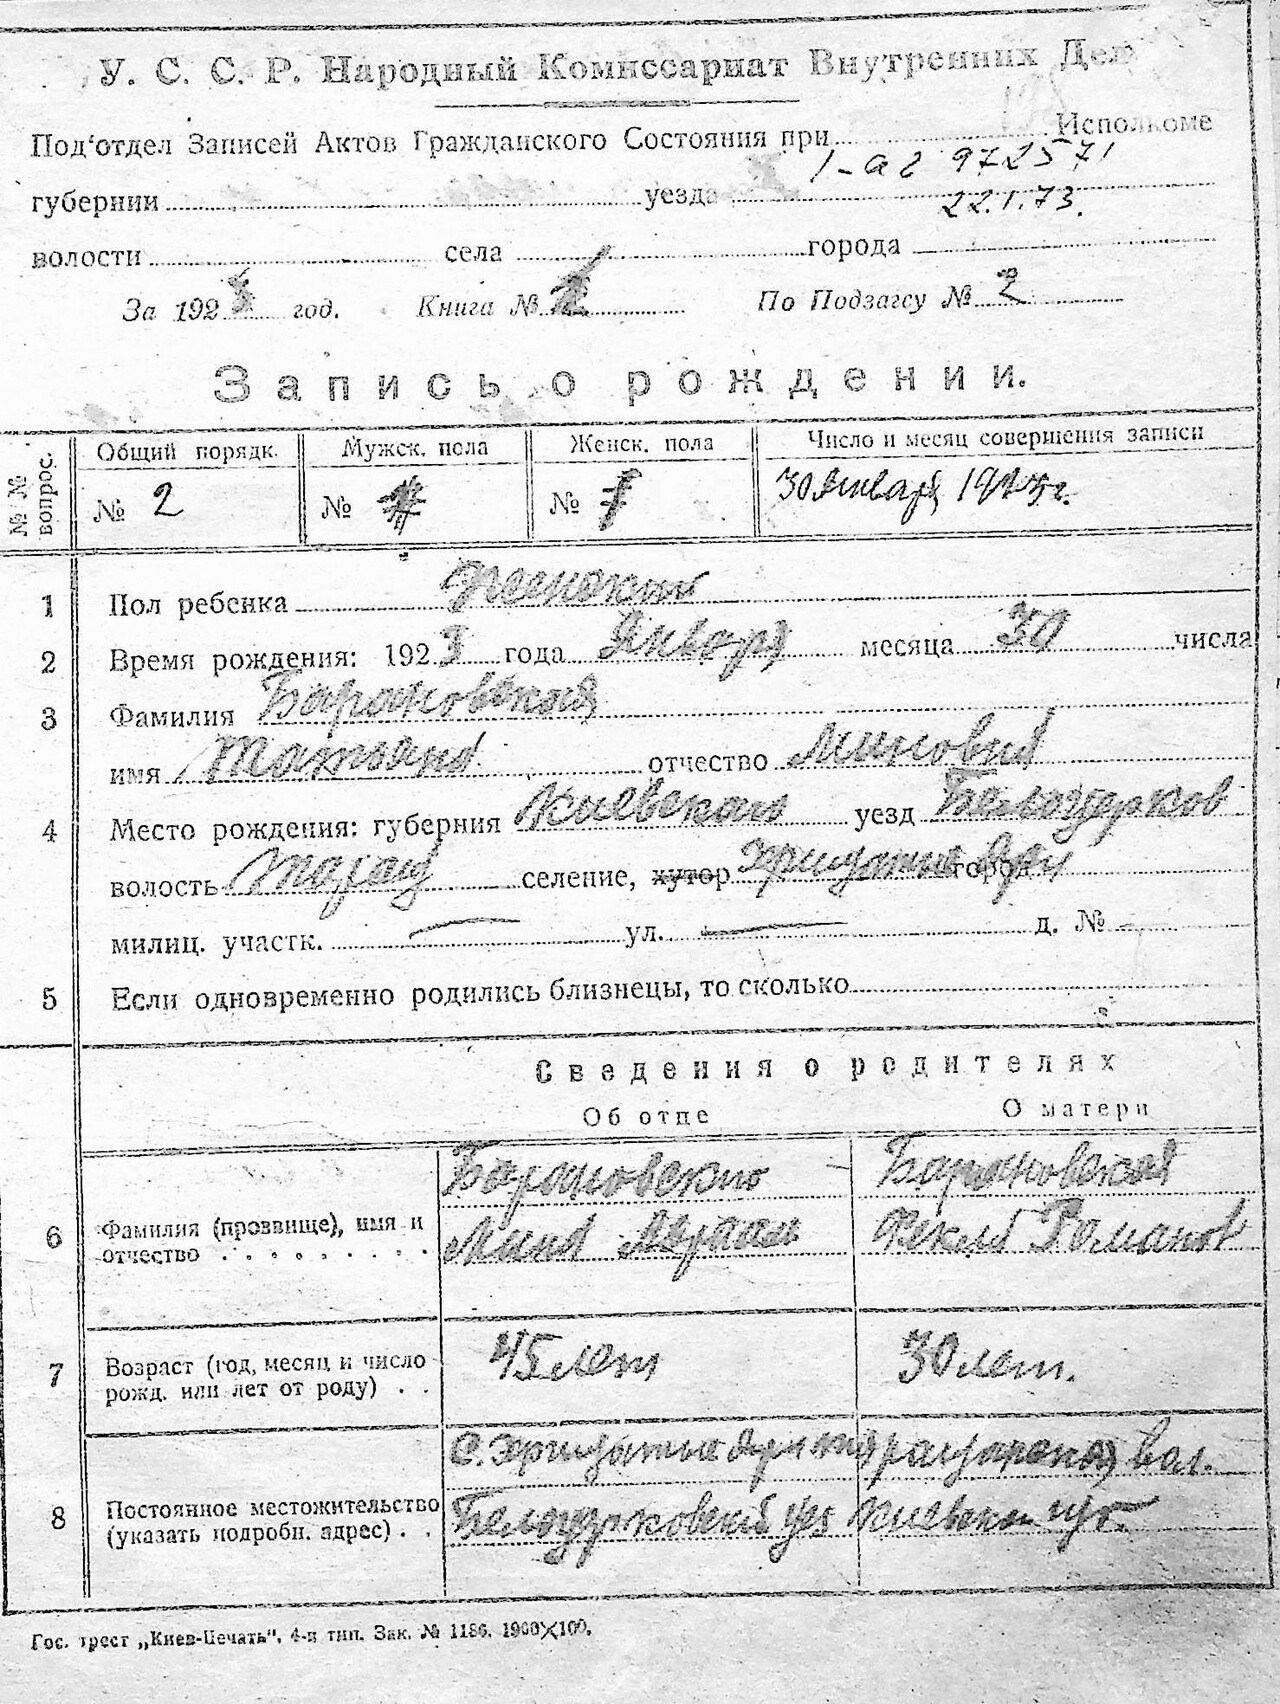 У. С. С. Р. Народный Комиссариат Внутренних Дел
Под'отдел Записей Актов Гражданского Состояния при Исполкоме
1-аг 972571
губернии уезда 22.1.73.
волости села города
За 1923 год. Книга № По Подзагсу № 2
Запись о рождении.
№ № вопрос. Общий порядк. Мужск. пола Женск. пола Число и месяц совершения записи
№ 2 № № 1 30 января 1923 г.
1 Пол ребенка женский
2 Время рождения: 1923 года Январ месяца 30 числа
3 Фамилия Барановская
имя Татьяна отчество Миновна
4 Место рождения: губерния Киевская уезд Белоцерков
волость селение, хутор город
милиц. участк. — ул. — д. № —
5 Если одновременно родились близнецы, то сколько
Сведения о родителях
Об отце О матери
Барановский Барановская
6 Фамилия (прозвище), имя и отчество Мина Фекла Романов
7 Возраст (год, месяц и число рожд. или лет от роду) 45 лет 30 лет.
С. вол.
8 Постоянное местожительство (указать подробн. адрес) Белоцерковский уез Киевской губ.
Гос. трест „Киев-Печать", 4-я тип. Зак. № 1186. 1900×100.